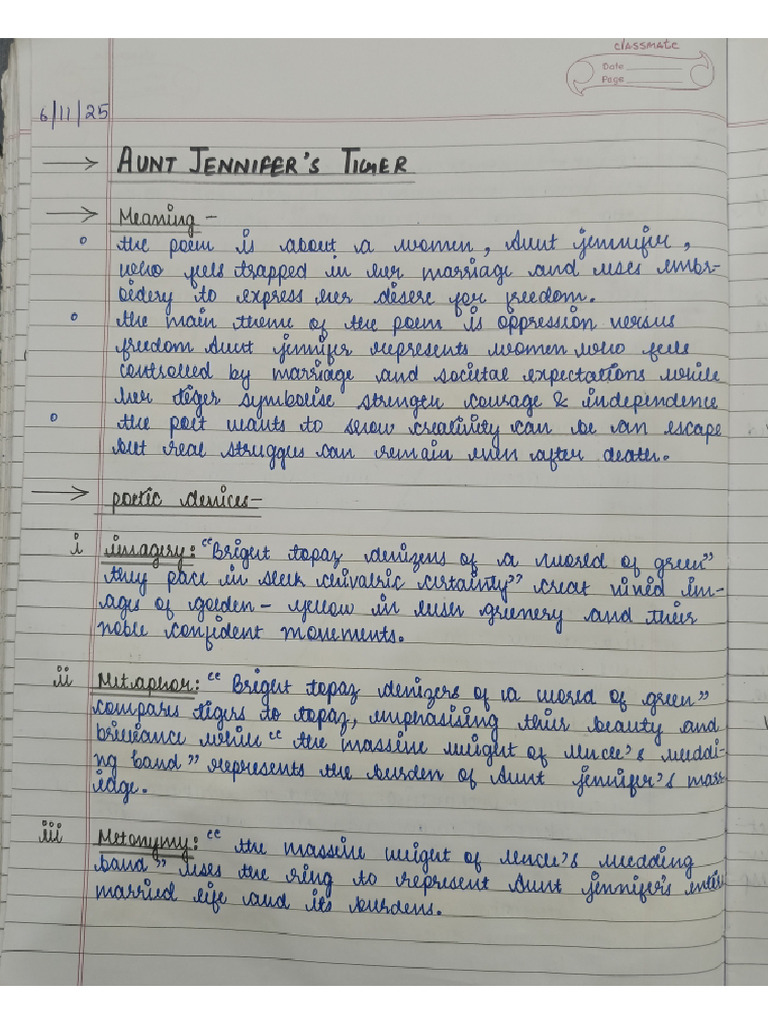 classmate
Date
Page
6/11/25
→ AUNT JENNIFER'S TIGER
→ Meaning -
the poem is about a women, Aunt jennifer,
who feels trapped in her marriage and uses embr-
oidery to express her desere for freedom.
the main theme of the poem is oppression versus
freedom Aunt jennifer represents women who feels
controlled by marriage and societal expectations while
her tiger symbolise strength courage & independence
the poet wants to show creativity can be an escape
but real struggles can remain even after death.
→ poetic devices-
i imagery: "Bright topaz denizens of a world of green"
they pace in sleek chivalric certainty" creat vived im-
ages of golden - yellow in lush greenery and their
noble confident movements.
ii Metaphor: "Bright topaz denizers of a world of green"
compares tigers to topaz, emphasising their beauty and
brilliance while "the massive weight of uncle's weddi-
ng band" represents the burden of Aunt jennifer's marr
iage.
iii Metonymy: "the massive weight of uncle's wedding
band" uses the ring to represent Aunt jennifer's
married life and its burdens.